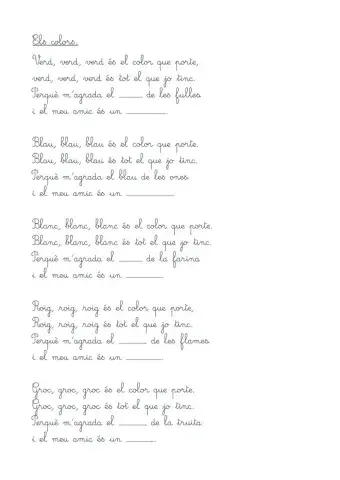 Els colors.
Verd, verd, verd és el color que porte,
verd, verd, verd és tot el que jo tinc.
Perquè m'agrada el _____ de les fulles
i el meu amic és un ________.
Blau, blau, blau és el color que porte.
Blau, blau, blau és tot el que jo tinc.
Perquè m'agrada el blau de les ones
i el meu amic és un __________
Blanc, blanc, blanc és el color que porte.
Blanc, blanc, blanc és tot el que jo tinc.
Perquè m'agrada el _____ de la farina
i el meu amic és un ________.
Roig, roig, roig és el color que porte,
Roig, roig, roig és tot el que jo tinc.
Perquè m'agrada el ______ de les flames
i el meu amic és un ________.
Groc, groc, groc és el color que porte.
Groc, groc, groc és tot el que jo tinc.
Perquè m'agrada el ______ de la truita
i el meu amic és un ______.